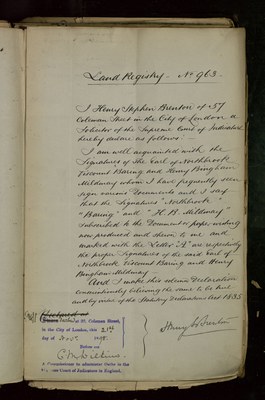 Land Registry - No 963.
I Henry Stephen Brenton of 57
Coleman Street in the City of London a
Solicitor of the Supreme Court of Judicature
hereby declare as follows:-
I am well acquainted with the
Signatures of The Earl of Northbrook
Viscount Baring and Henry Bingham
Mildmay whom I have frequently seen
sign various Documents and I say
that the Signatures "Northbrook"
"Baring" and "H. B. Mildmay"
subscribed to the Document or paper writing
now produced and shewn to me and
marked with the Letter "A" are respectively
the proper Signatures of the said Earl of
Northbrook Viscount Baring and Henry
Bingham Mildmay
And I make this solemn Declaration
conscientiously believing the same to be true
and by virtue of the Statutory Declarations Act 1835
Henry S Brenton
Coleman Street,
in the City of London, this 21st
day of Novr.
Before me
A Commissioner to administer Oaths in the
Supreme Court of Judicature in England.